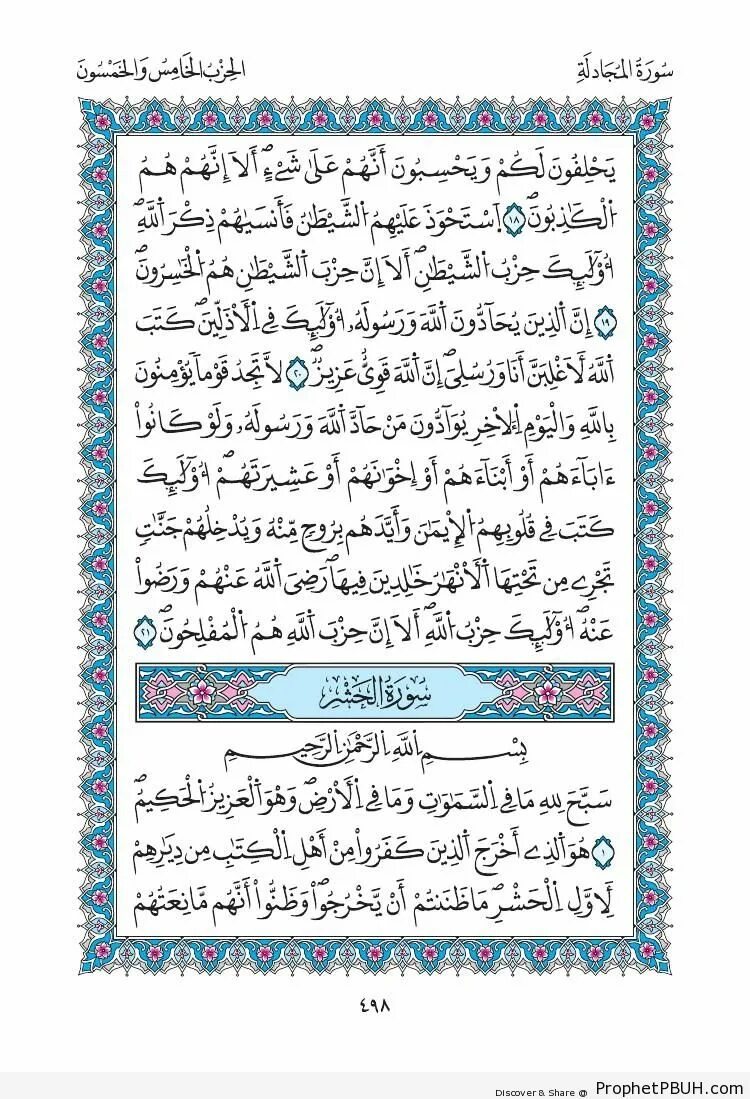 سُورَةُ الْمُجَادِلَةِ
الحِزْبُ الخَامِسُ وَالخَمْسُونَ
يَحْلِفُونَ لَكُمْ وَيَحْسِبُونَ أَنَّهُمْ عَلَىٰ شَيْءٍ أَلَا إِنَّهُمْ هُمُ
اُلْكَٰذِبُونَ ١٨ اَسْتَحْوَذَ عَلَيْهِمُ اُلشَّيْطَٰنُ فَأَنسَىٰهُمْ ذِكْرَ اَللَّهِ
أُوْلَٰٓئِكَ حِزْبُ اُلشَّيْطَٰنِ أَلَا إِنَّ حِزْبَ اَلشَّيْطَٰنِ هُمُ اُلْخَٰسِرُونَ
١٩ إِنَّ اَلذِينَ يُحَآدُّونَ اَللَّهَ وَرَسُولَهُۥ أُوْلَٰٓئِكَ فِے اِلْأَذَلِّينَ كَتَبَ
اَللَّهُ لَأَغْلِبَنَّ أَنَا وَرُسُلِيَ إِنَّ اَللَّهَ قَوِيٌّ عَزِيزٌ ٢٠ لَّا تَجِدُ قَوْماً يُؤْمِنُونَ
بِاللَّهِ وَالْيَوْمِ اِلْأٓخِرِ يُوَآدُّونَ مَنْ حَآدَّ اَللَّهَ وَرَسُولَهُۥ وَلَوْ كَانُواْ
ءَابَآءَهُمْ أَوْ أَبْنَآءَهُمْ أَوْ إِخْوَٰنَهُمْ أَوْ عَشِيرَتَهُمْ أُوْلَٰٓئِكَ
كَتَبَ فِے قُلُوبِهِمُ اُلْإِيمَٰنَ وَأَيَّدَهُم بِرُوحٍ مِّنْهُ وَيُدْخِلُهُمْ جَنَّٰتٍ
تَجْرِے مِن تَحْتِهَا اَلْأَنْهَٰرُ خَٰلِدِينَ فِيهَا رَضِيَ اَللَّهُ عَنْهُمْ وَرَضُواْ
عَنْهُ أُوْلَٰٓئِكَ حِزْبُ اُللَّهِ أَلَا إِنَّ حِزْبَ اَللَّهِ هُمُ اُلْمُفْلِحُونَ ٢١
سُورَةُ الحَشْرِ
بِسْمِ اِللَّهِ اِلرَّحْمَٰنِ اِلرَّحِيمِ
سَبَّحَ لِلهِ مَا فِے اِلسَّمَٰوَٰتِ وَمَا فِے اِلْأَرْضِ وَهْوَ اَلْعَزِيزُ اُلْحَكِيمُ
١ هُوَ اَلذِے أَخْرَجَ اَلذِينَ كَفَرُواْ مِنْ أَهْلِ اِلْكِتَٰبِ مِن دِيَٰرِهِمْ
لِأَوَّلِ اِلْحَشْرِ مَا ظَنَنتُمْ أَنْ يَّخْرُجُواْ وَظَنُّواْ أَنَّهُم مَّانِعَتُهُمْ
٤٩٨
Discover & Share @ ProphetPBUH.com